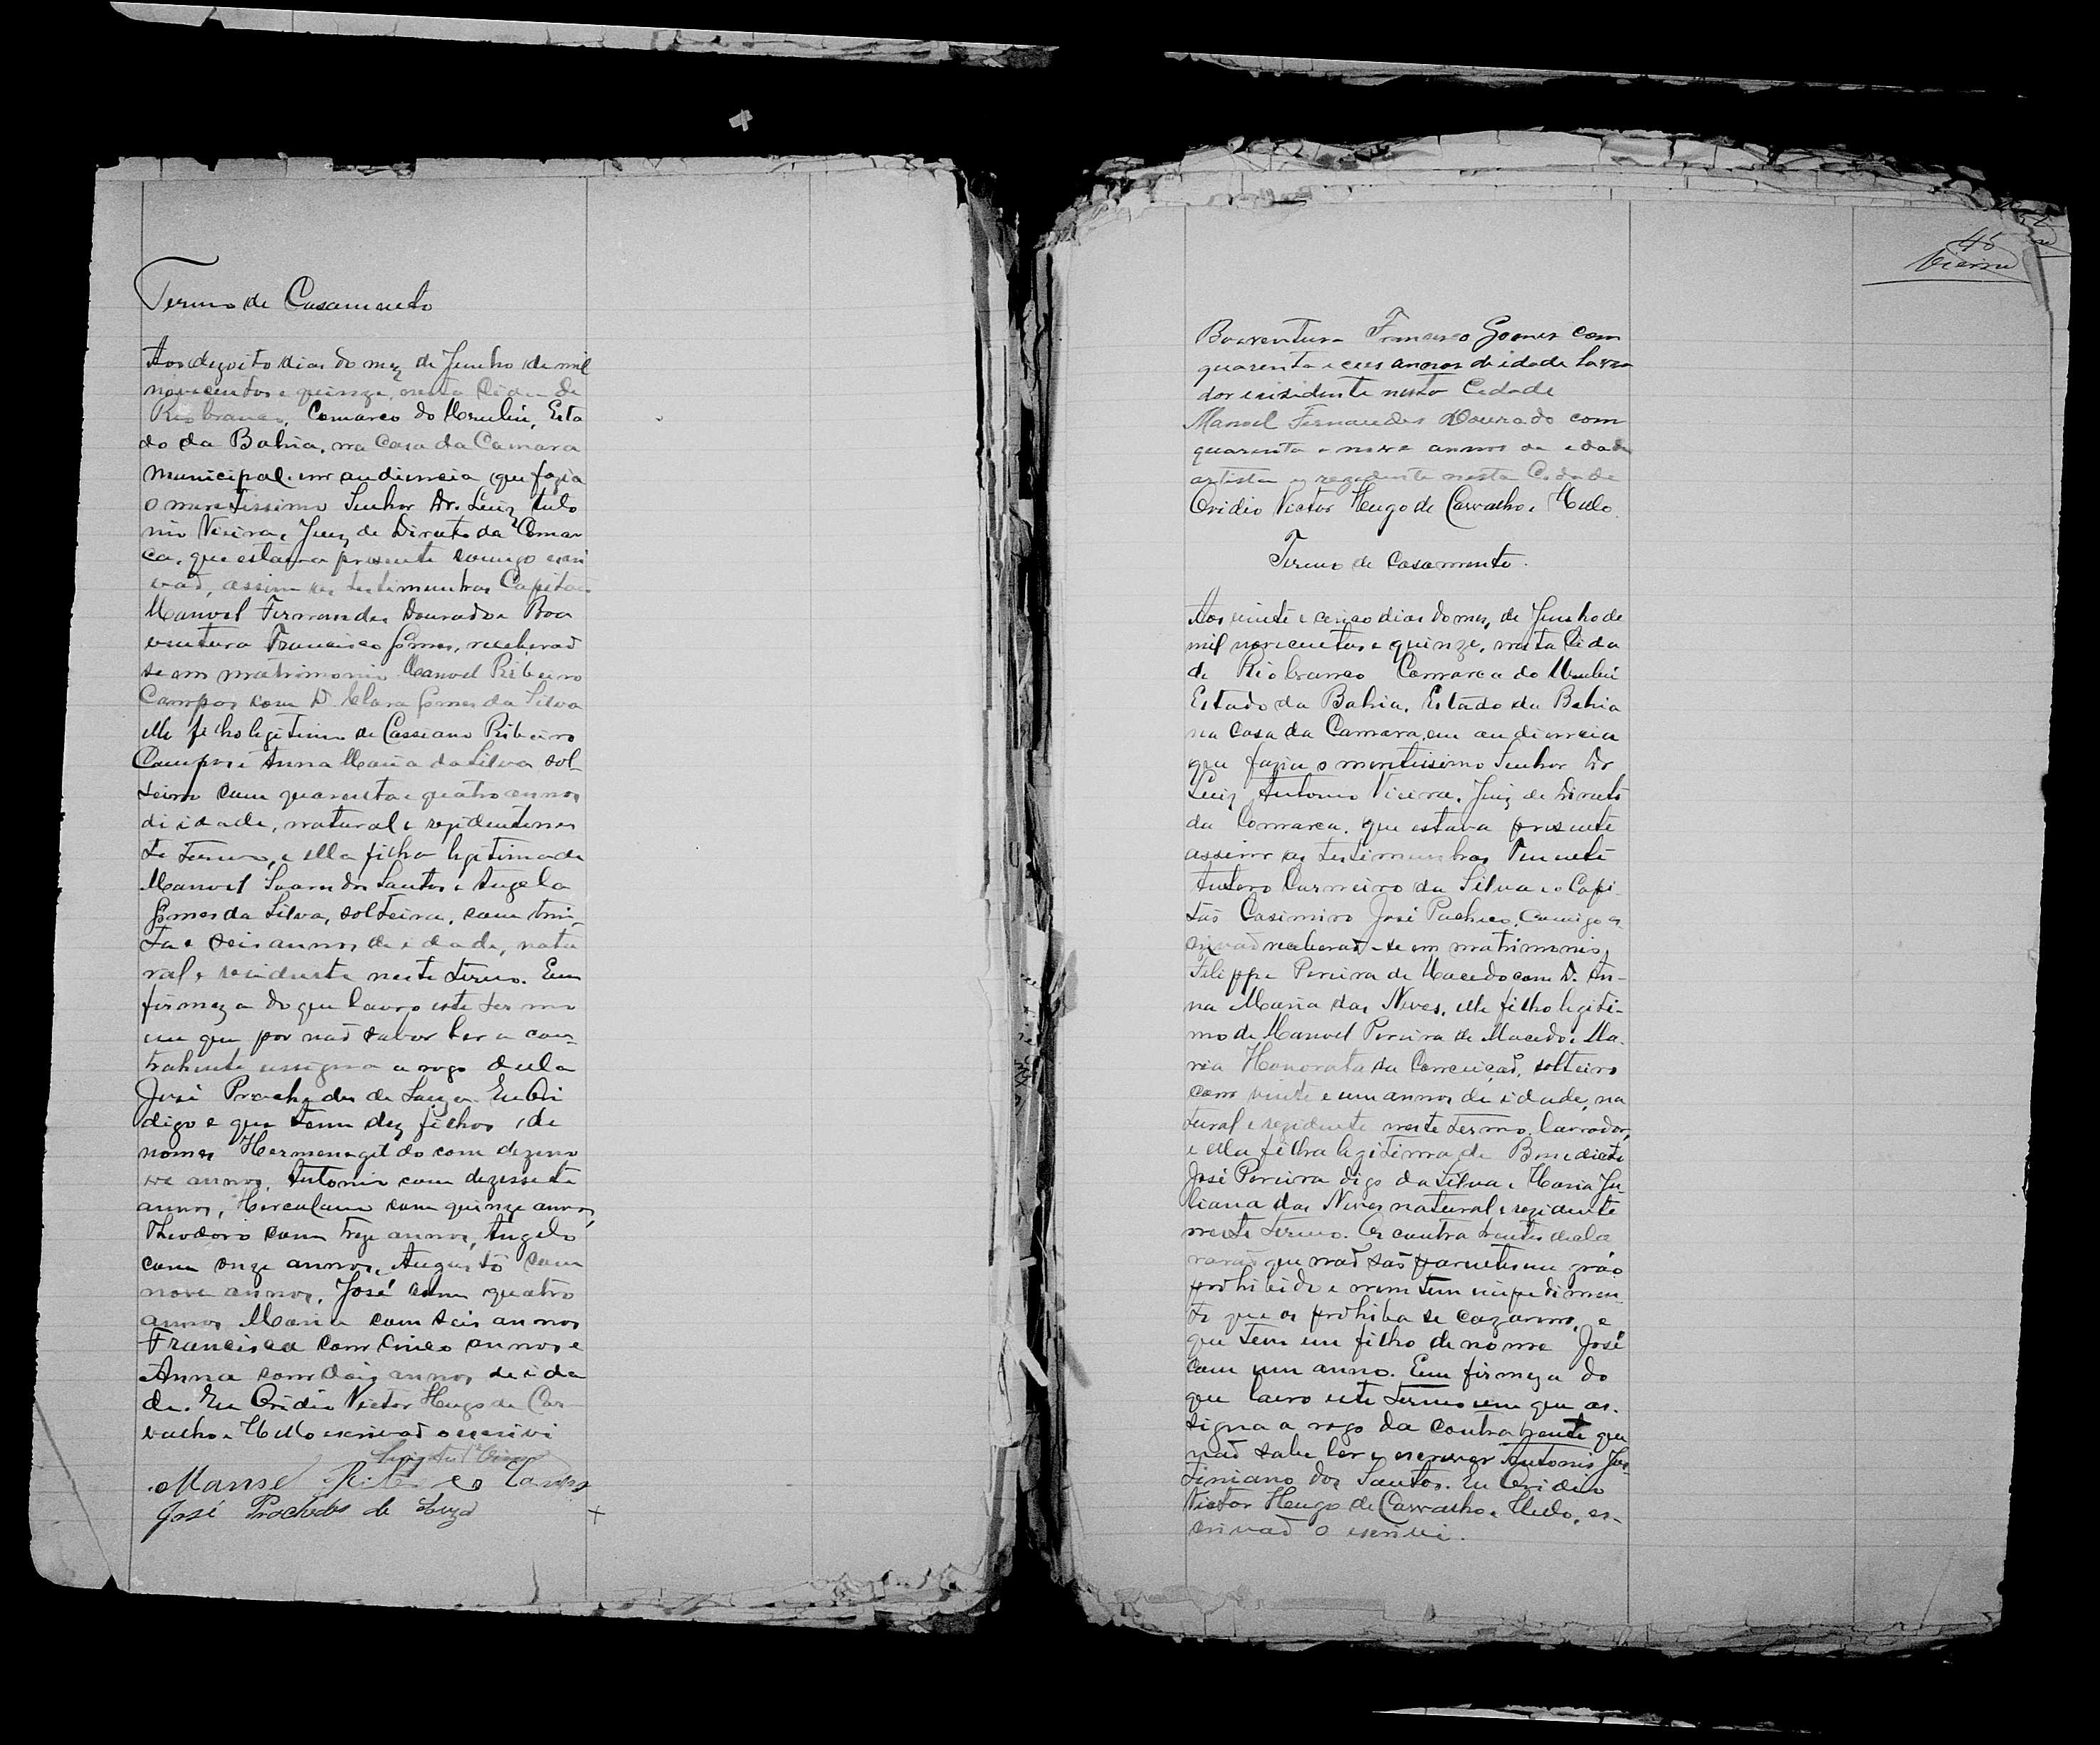 Termo de Casamento
Aos dezoito dias do mez de Junho de mil
novecentos e quinze, nesta Cidade de
Rio branco, Comarca do Urubú, Esta
do da Bahia, na Casa da Camara
Municipal em audiencia que fazia
o meretissimo Senhor Dr. Luiz Anto
nio Vieira, Juiz de Direito da Comar
ca, que estava presente comigo escri
vaõ, assim as testimunhas Capitaõ
Manoel Fernandes Dourado e Boa
ventura Francisco Gomes, receberaõ
se em matrimonio Manoel Ribeiro
Campos com D. Clara Gomes da Silva
elle filho legitimo de Cassiano Ribeiro
Campos e Anna Maria da Silva sol-
teiro com quarenta e quatro annos
di idade, natural e rezidente nes
te termo, e ella filha legitima de
Manoel Soares dos Santos e Angela
Gomes da Silva, solteira, com trin
ta e seis annos de idade, natu
ral e residente neste termo. Em
firmeza do que lavro este termo
em que por naõ saber ler a con-
trahente assigna a rogo della
José Prachedes de Souza. Eu Ovi
digo e que tem dez filhos, de
nomes Hermenegildo com dezeno
ve annos, Antonio com dezessete
annos, Herculano com quinze annos,
Theodoro com treze annos, Angelo
com onze annos, Augusto com
nove annos, José com quatro
annos Maria com seis annos
Francisca com cinco annos e
Anna com dois annos de ida
de. Eu Ovidio Victor Hugo de Car-
valho e Mello escrivaõ o escrivi
Luiz Ant.º Vieira
Manoel Ribeiro Campos
José Prachedes de Souza
45
Vieira
Boaventura Francisco Gomes com
quarenta e seis annos de idade lavra
dor e residente nesta Cidade
Manoel Fernandes Dourado com
quarenta e nove annos de edade
artista e rezidente nesta Cidade
Ovidio Victor Hugo de Carvalho e Mello.
Termo de Casamento.
Aos vinte e cinco dias do mez de Junho de
mil novecentos e quinze, nesta Cida
de Rio branco Comarca do Urubú
Estado da Bahia, Estado da Bahia
na Casa da Camara, em audiencia
que fazia o meretissimo Senhor Dr
Luiz Antonio Vieira, Juiz de Direito
da Comarca, que estava presente
assim as testimunhas Tenente
Antero Carneiro da Silva e o Capi-
taõ Casimiro José Pacheco, Comigo es
crivaõ receberaõ-se em matrimonio,
Filippe Pereira de Macedo com D. An-
na Maria das Neves, elle filho legiti-
mo de Manoel Pereira de Macedo e Ma-
ria Honorata da Conceiçaõ, solteiro
com vinte e um annos di idade, na
tural e rezidente neste termo, lavrador,
e ella filha legitima de Benedicto
José Pereira digo da Silva e Maria Ju-
liana das Neves natural e rezidente
neste termo. Os contrahentes decla
raraõ que naõ saõ parentes em gráo
prohibido e nem tem impedimen-
to que os prohiba se cazarem, e
que tem um filho de nome José
com um anno. Em firmeza do
que lavro este termo em que as-
signa a rogo da contrahente que
naõ sabe ler e escrever Antonio Jus-
tiniano dos Santos. Eu Ovidio
Victor Hugo de Carvalho e Mello, es-
crivaõ o escrivi.